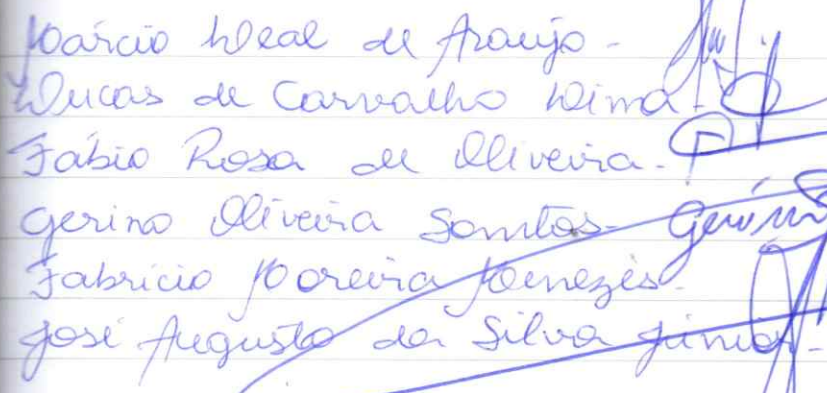 Márcio Leal de Araujo -
Lucas de Carvalho Lima -
Fábio Rosa de Oliveira -
Gerino Oliveira Santos -
Fabrício Moreira Menezes -
José Augusto da Silva Júnior -